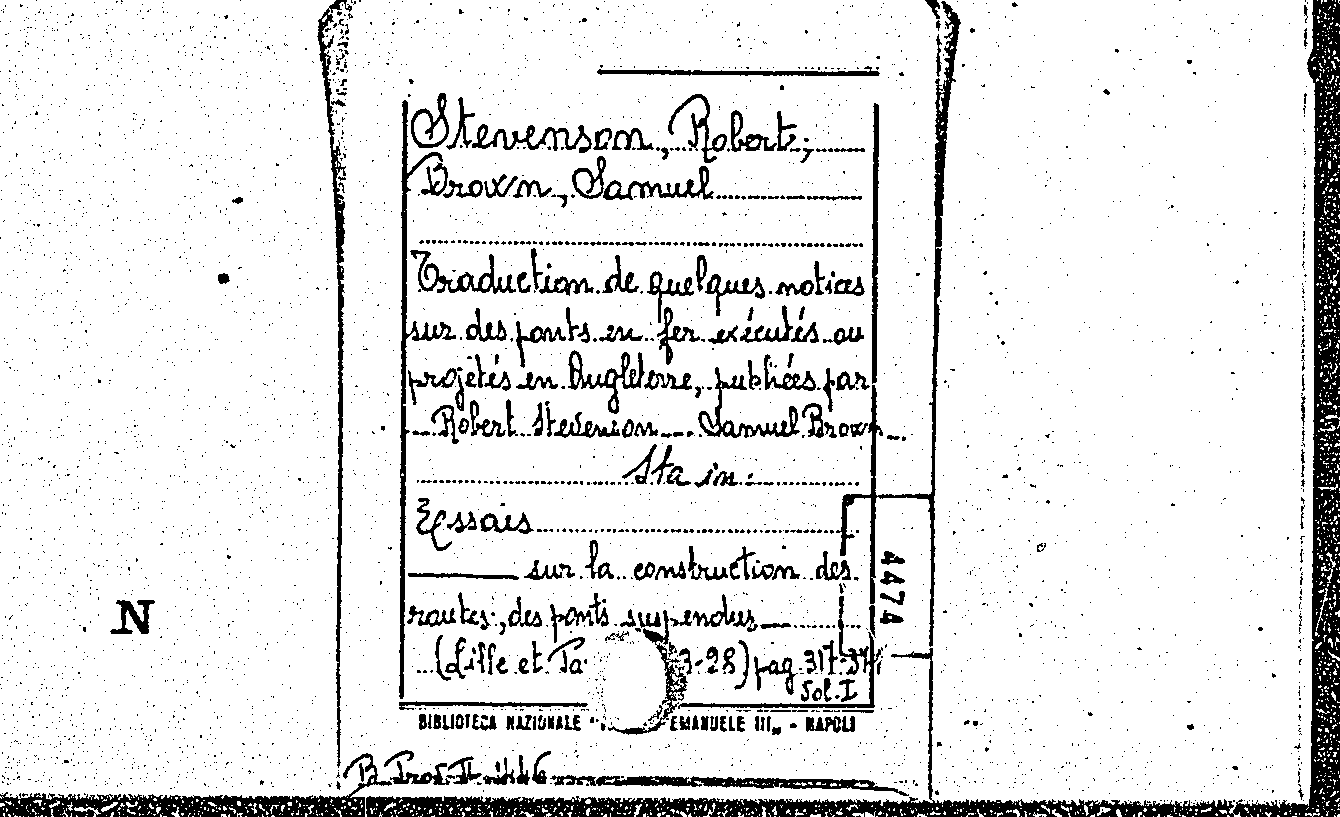 Stevenson, Robert;
Brown, Samuel
Traduction de quelques notices
sur des ponts en fer exécutés ou
projetés en Angleterre, publiées par
Robert Stevenson Samuel Brown
Sta in:
Essais
sur la construction des
routes, des ponts suspendus
(Lille et Pa 3-28) pag 317-
Vol. I
4474
N
BIBLIOTECA NAZIONALE " EMANUELE III„ - NAPOLI
B. Prov. II